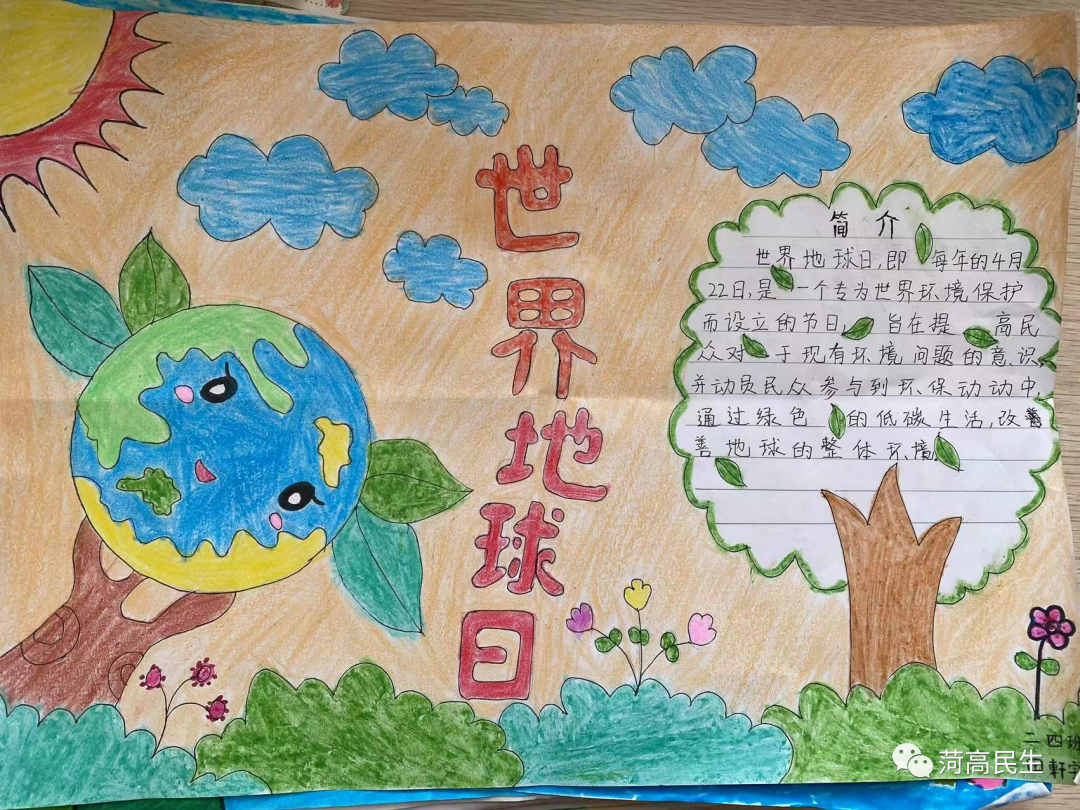 世界地球日
简介
世界地球日,即每年的4月
22日,是一个专为世界环境保护
而设立的节日,旨在提高民
众对于现有环境问题的意识,
并动员民众参与到环保动动中,
通过绿色的低碳生活,改善
善地球的整体环境.
二四班
軒宇
菏高民生